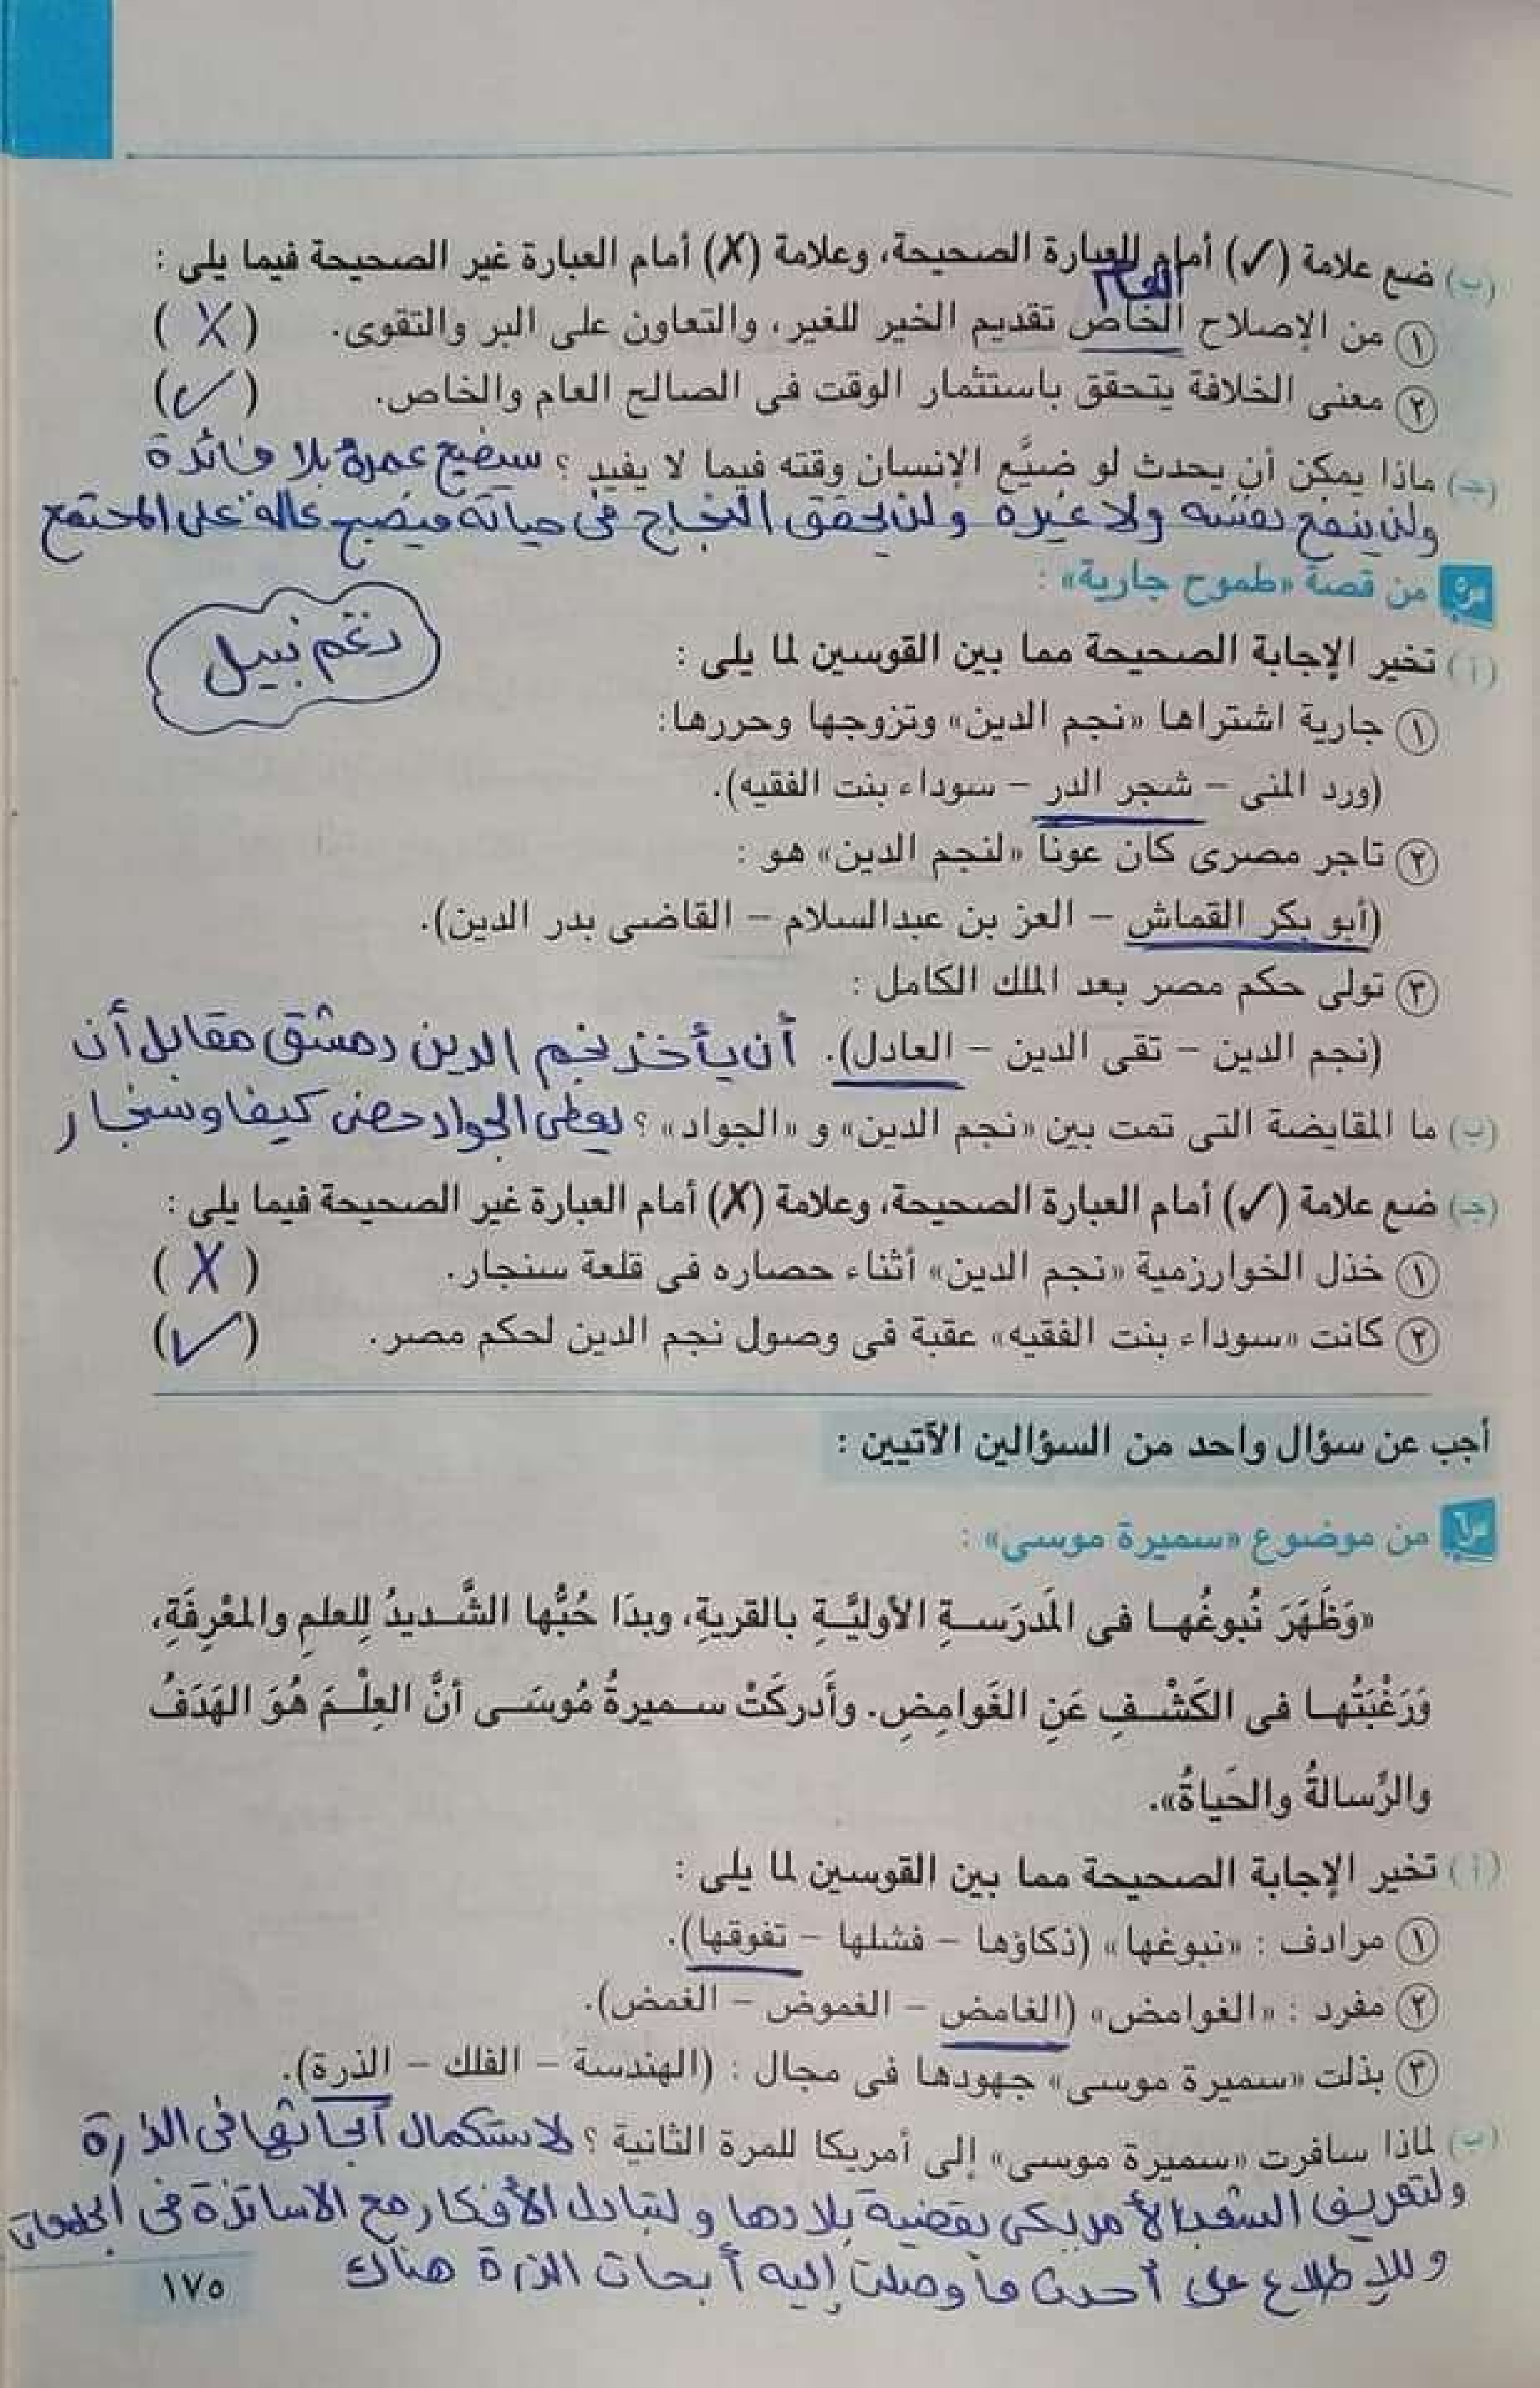 (ب) ضع علامة (✓) أمام العبارة الصحيحة، وعلامة (✗) أمام العبارة غير الصحيحة فيما يلى :
العام
١ من الإصلاح الخاص تقديم الخير للغير، والتعاون على البر والتقوى. (✗)
٢ معنى الخلافة يتحقق باستثمار الوقت فى الصالح العام والخاص. (✓)
(جـ) ماذا يمكن أن يحدث لو ضيَّع الإنسان وقته فيما لا يفيد ؟ سيضيع عمره بلا فائدة
ولن ينفع نفسه ولا غيره ولن يحقق النجاح فى حياته فيصبح عالة على المجتمع
س٥ من قصة «طموح جارية» :
نغم نبيل
(أ) تخير الإجابة الصحيحة مما بين القوسين لما يلى :
١ جارية اشتراها «نجم الدين» وتزوجها وحررها:
(ورد المنى – شجر الدر – سوداء بنت الفقيه).
٢ تاجر مصرى كان عونا «لنجم الدين» هو :
(أبو بكر القماش – العز بن عبدالسلام – القاضى بدر الدين).
٣ تولى حكم مصر بعد الملك الكامل :
(نجم الدين – تقى الدين – العادل). أن يأخذ نجم الدين دمشق مقابل أن
(ب) ما المقايضة التى تمت بين «نجم الدين» و «الجواد» ؟ يعطى الجواد حصن كيفا وسنجار
(جـ) ضع علامة (✓) أمام العبارة الصحيحة، وعلامة (✗) أمام العبارة غير الصحيحة فيما يلى :
١ خذل الخوارزمية «نجم الدين» أثناء حصاره فى قلعة سنجار. (✗)
٢ كانت «سوداء بنت الفقيه» عقبة فى وصول نجم الدين لحكم مصر. (✓)
أجب عن سؤال واحد من السؤالين الآتيين :
س٦ من موضوع «سميرة موسى» :
«وَظَهَرَ نُبوغُها فى المَدرَسةِ الأوليَّةِ بالقريةِ، وبدَا حُبُّها الشَّديدُ لِلعلمِ والمعْرِفَةِ،
وَرَغْبَتُها فى الكَشْفِ عَنِ الغَوامِضِ. وأَدركَتْ سميرةُ مُوسَى أنَّ العِلْمَ هُوَ الهَدَفُ
والرِّسالةُ والحَياةُ».
(أ) تخير الإجابة الصحيحة مما بين القوسين لما يلى :
١ مرادف : «نبوغها» (ذكاؤها – فشلها – تفوقها).
٢ مفرد : «الغوامض» (الغامض – الغموض – الغمض).
٣ بذلت «سميرة موسى» جهودها فى مجال : (الهندسة – الفلك – الذرة).
(ب) لماذا سافرت «سميرة موسى» إلى أمريكا للمرة الثانية ؟ لاستكمال أبحاثها فى الذرة
ولتعريف الشعب الأمريكى بقضية بلادها ولتبادل الأفكار مع الاساتذة فى الجامعات
وللإطلاع على أحدث ما وصلت إليه أبحاث الذرة هناك
١٧٥